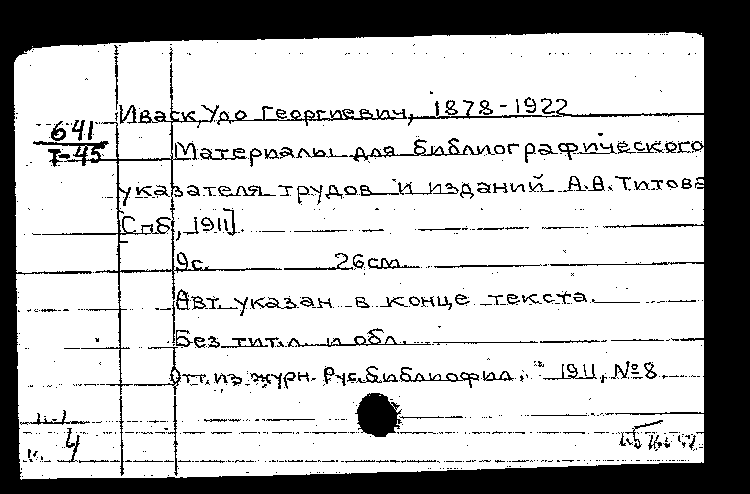 Иваск, Удо Георгиевич, 1878-1922
641
Т-45
Материалы для библиографического
указателя трудов и изданий А.А. Титова
[Спб, 1911].
9с. 26см.
Авт. указан в конце текста.
Без тит.л. и обл.
Отт. из журн. Рус. библиофил, 1911, №8.
4